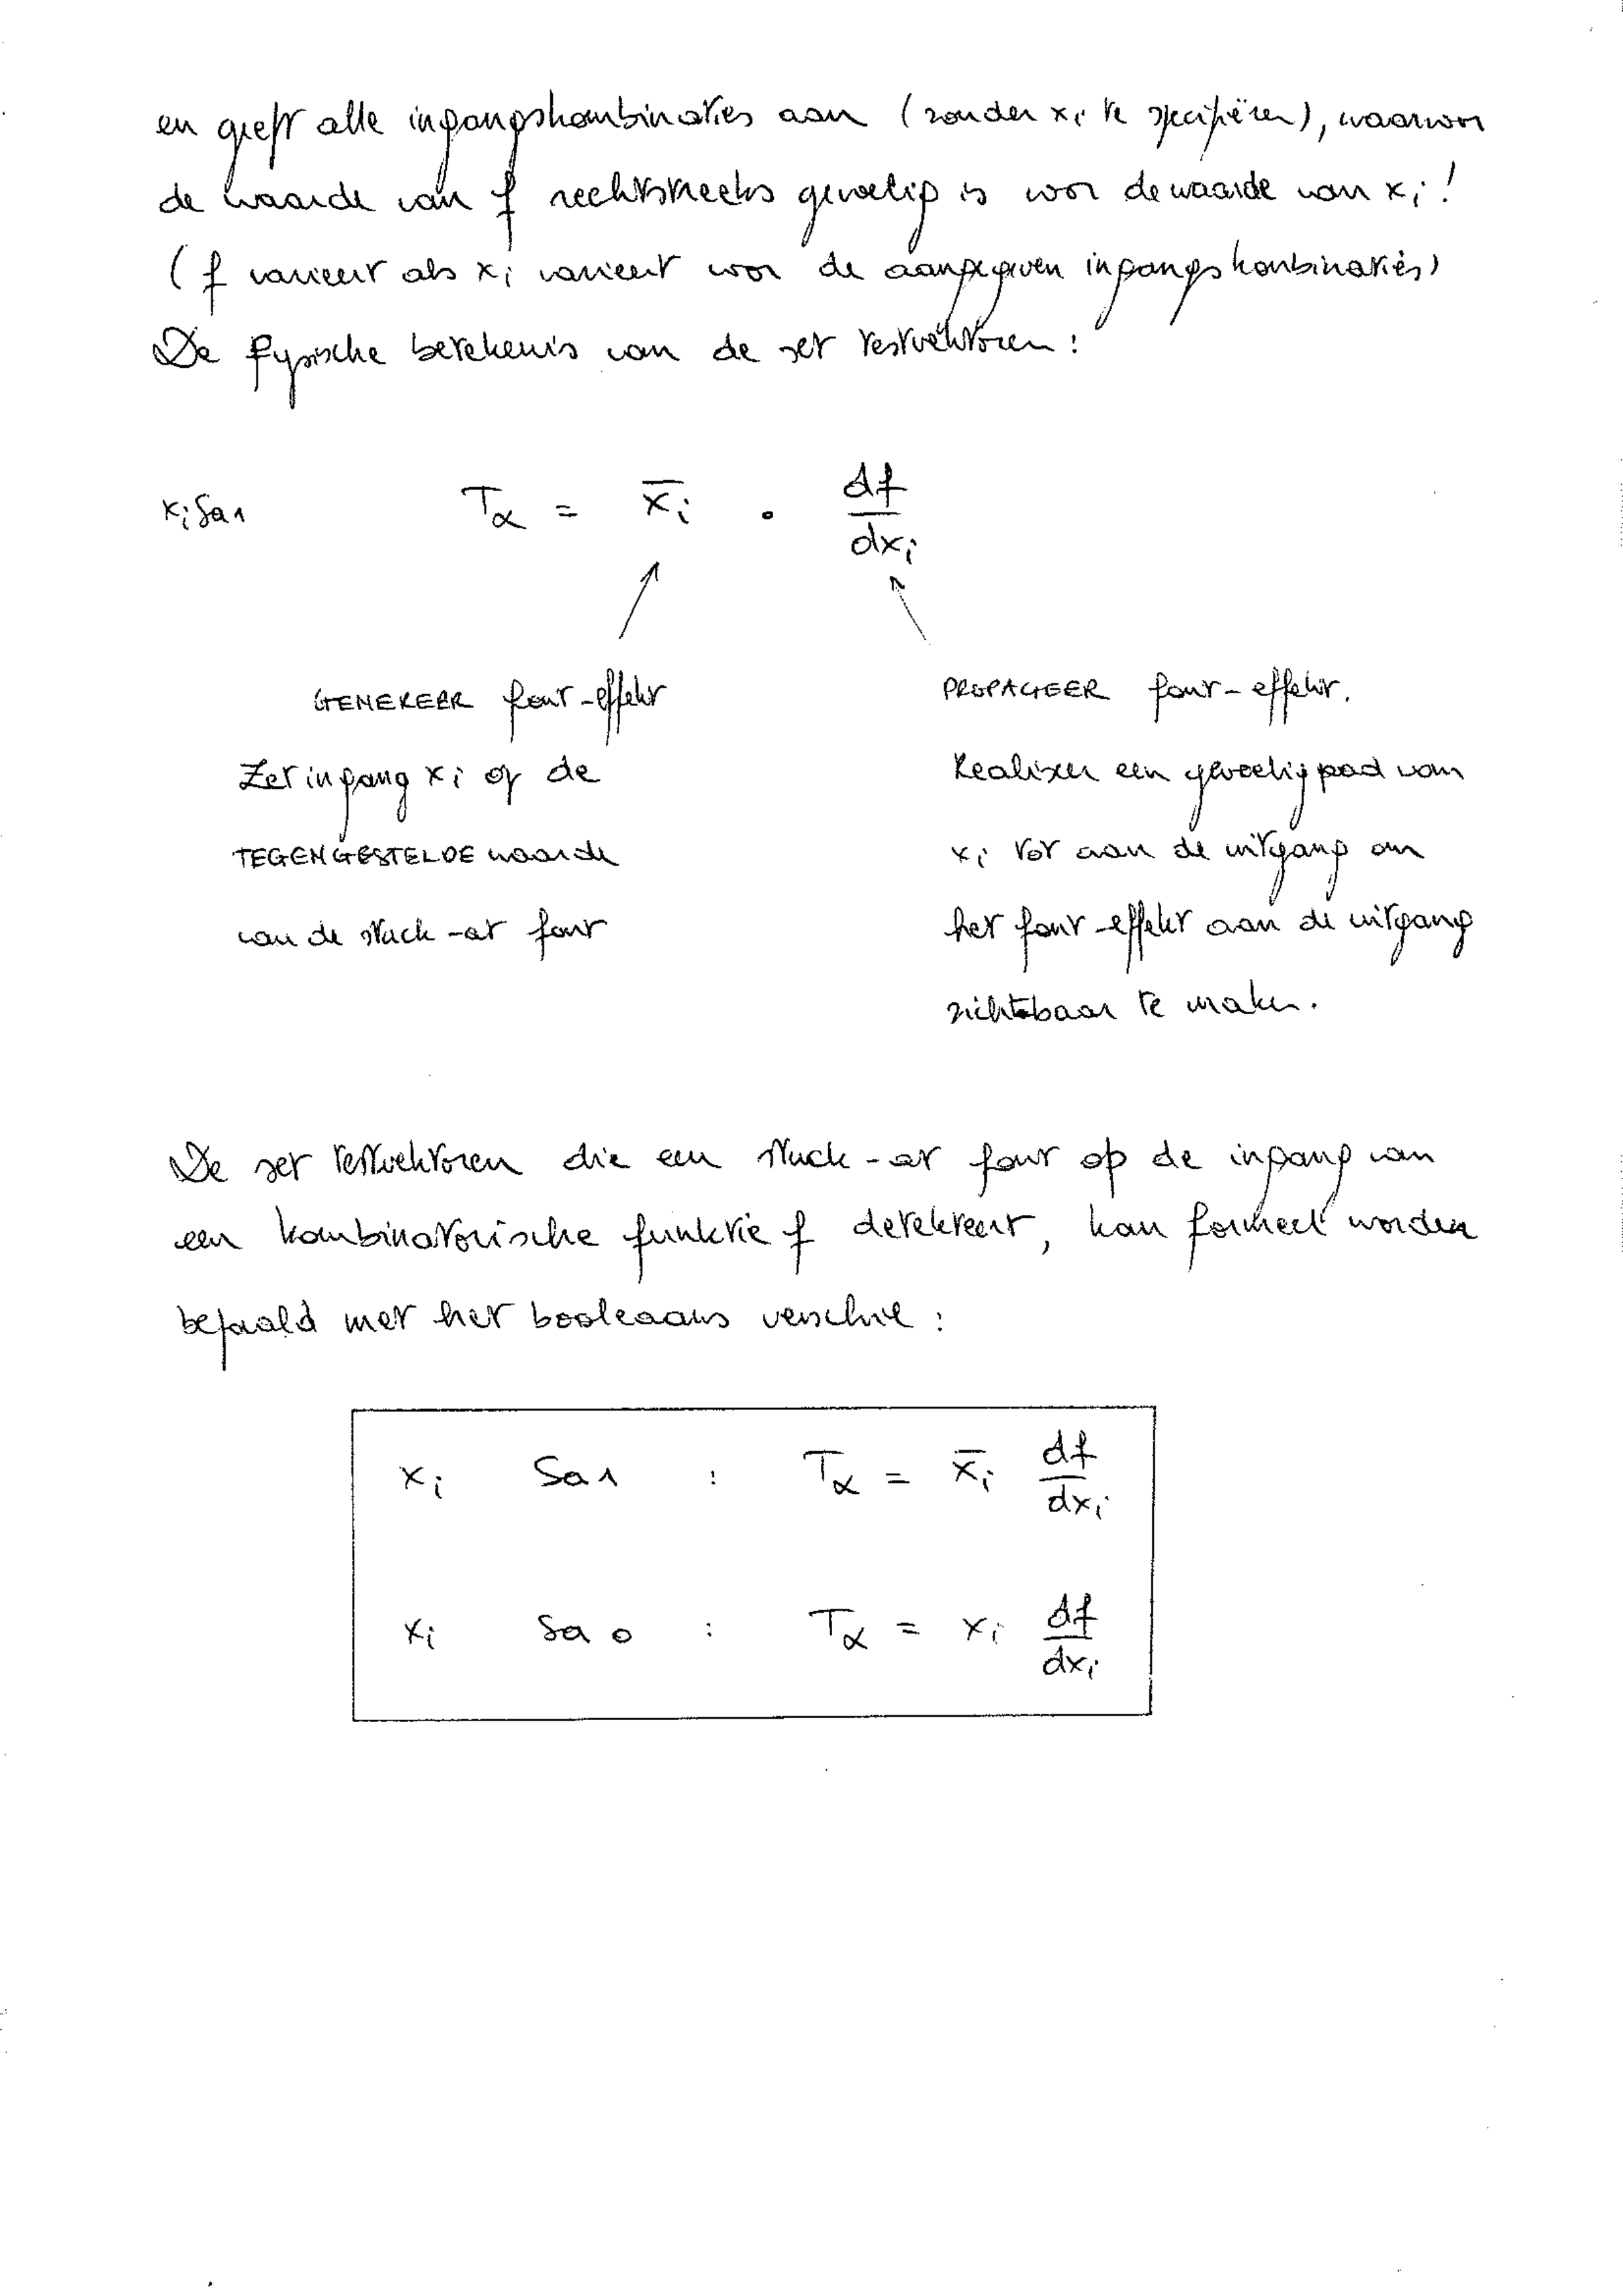 en geeft alle ingangskombinaties aan (zonder xi te specifiëren), waarvoor
de waarde van f rechtstreeks gevoelig is voor de waarde van xi!
(f varieert als xi varieert voor de aangegeven ingangskombinaties)
De fysische betekenis van de set testvektoren:
xi Sa1 Tα = x̄i . df/dxi
GENEREER fout-effekt
Zet ingang xi op de
TEGENGESTELDE waarde
van de stuck-at fout
PROPAGEER fout-effekt.
Realiseer een gevoelig pad van
xi tot aan de uitgang om
het fout-effekt aan de uitgang
zichtbaar te maken.
De set testvektoren die een stuck-at fout op de ingang van
een kombinatorische funktie f detekteert, kan formeel worden
bepaald met het booleaans verschil:
xi Sa1 : Tα = x̄i df/dxi
xi Sa0 : Tα = xi df/dxi